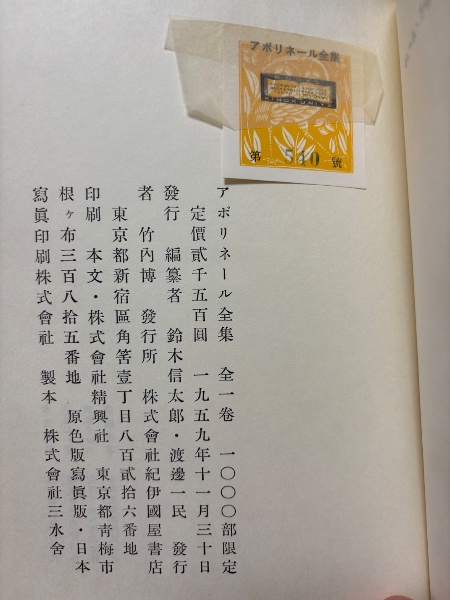 アポリネール全集
KINOKUNIYA
第 540 號
アポリネール全集 全一卷 一〇〇〇部限定
定價貳千五百圓 一九五九年十一月三十日
發行 編纂者 鈴木信太郎・渡邊一民 發行
者 竹內博 發行所 株式會社紀伊國屋書店
東京都新宿區角筈壹丁目八百貳拾六番地
印刷 本文・株式會社精興社 東京都靑梅市
根ヶ布三百八拾五番地 原色版寫眞版・日本
寫眞印刷株式會社 製本 株式會社三水舍